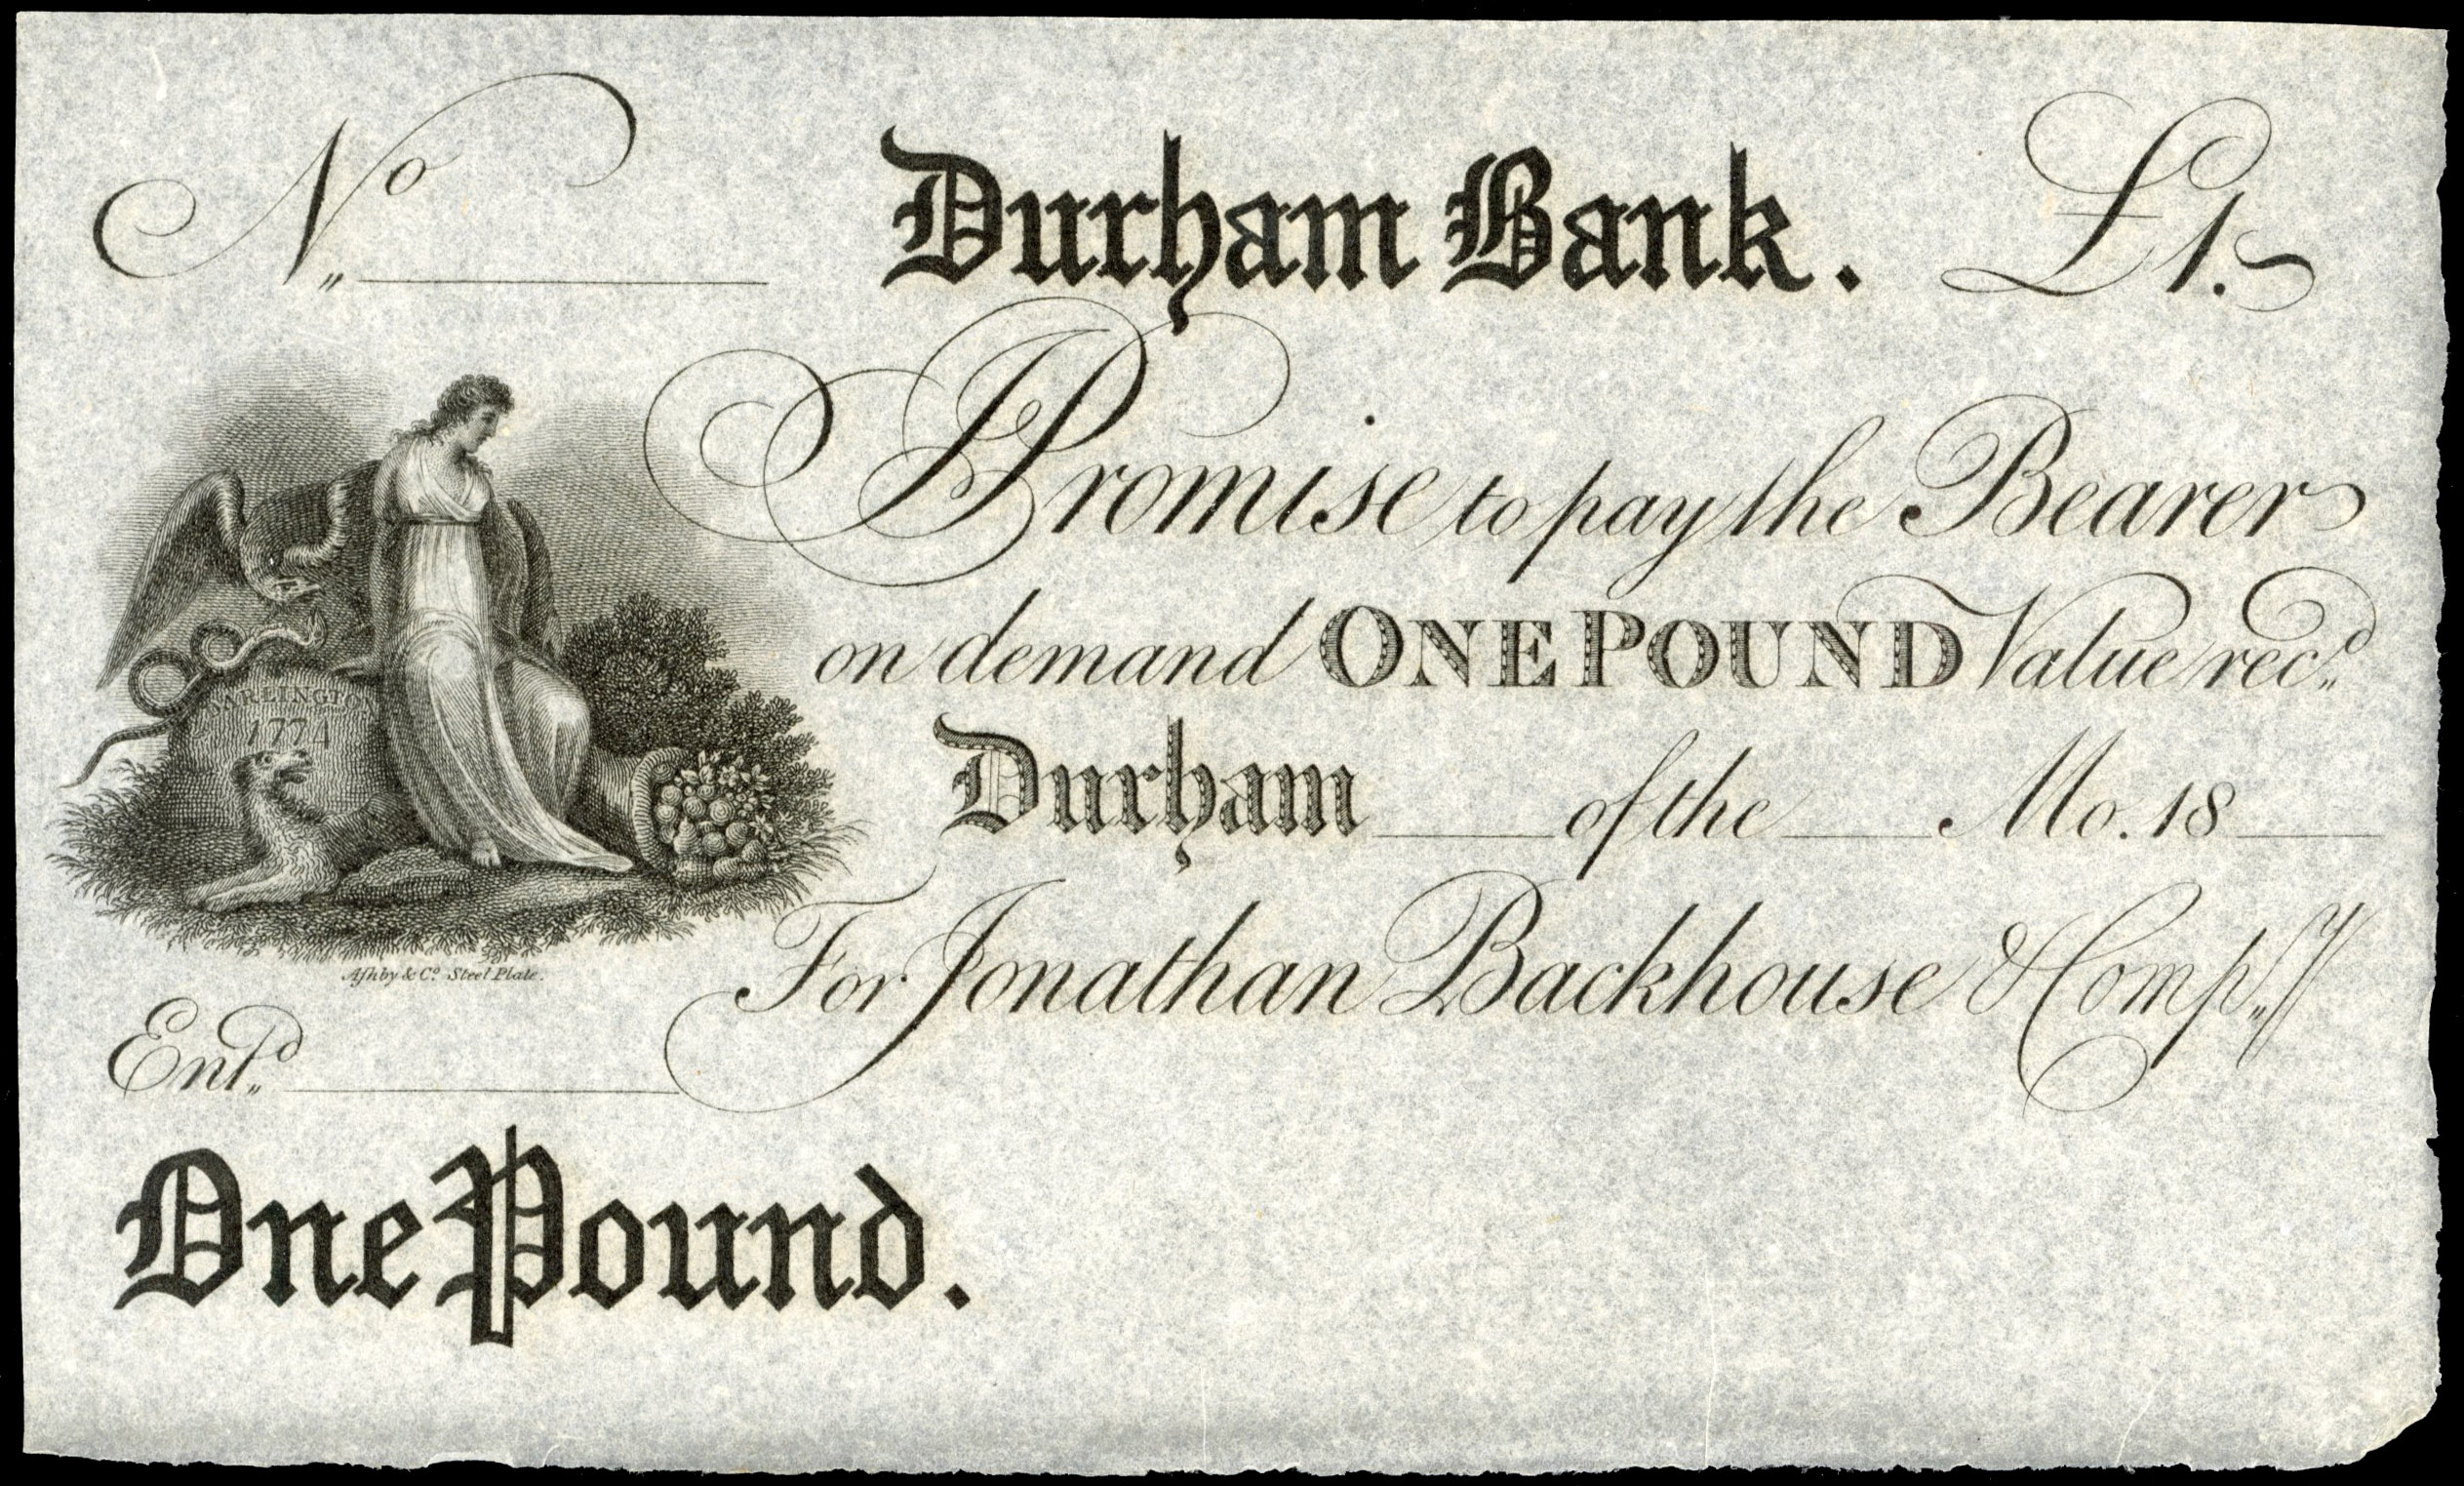 No
Durham Bank. £1.
I Promise to pay the Bearer
on demand ONE POUND Value recd.
Durham ____ of the ____ Mo. 18 ____
For Jonathan Backhouse & Compy.
DARLINGTON
1774
Ashby & Co. Steel Plate.
Entd.
One Pound.